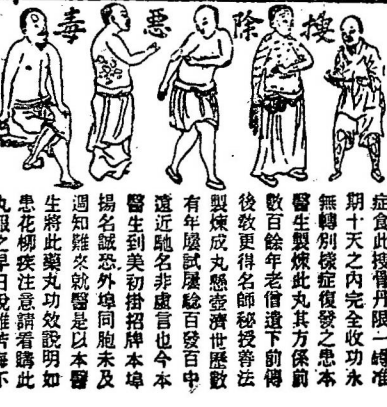 搜除惡毒
症食此搜骨丹限一時准
期十天之內完全收功永
無轉別樣症復發之患本
醫生製煉此丸其方係前
數百餘年老僧遺下前傳
後敎更得名師秘授善法
製煉成丸懸壺濟世歷數
有年屢試屢驗百發百中
遠近馳名非虛言也今本
醫生到美初掛招牌本埠
揚名誠恐外埠同胞未及
週知難來就醫是以本醫
生將此藥丸功效說明如
患花柳疾注意請看購此
丸服之早日脫離苦海不